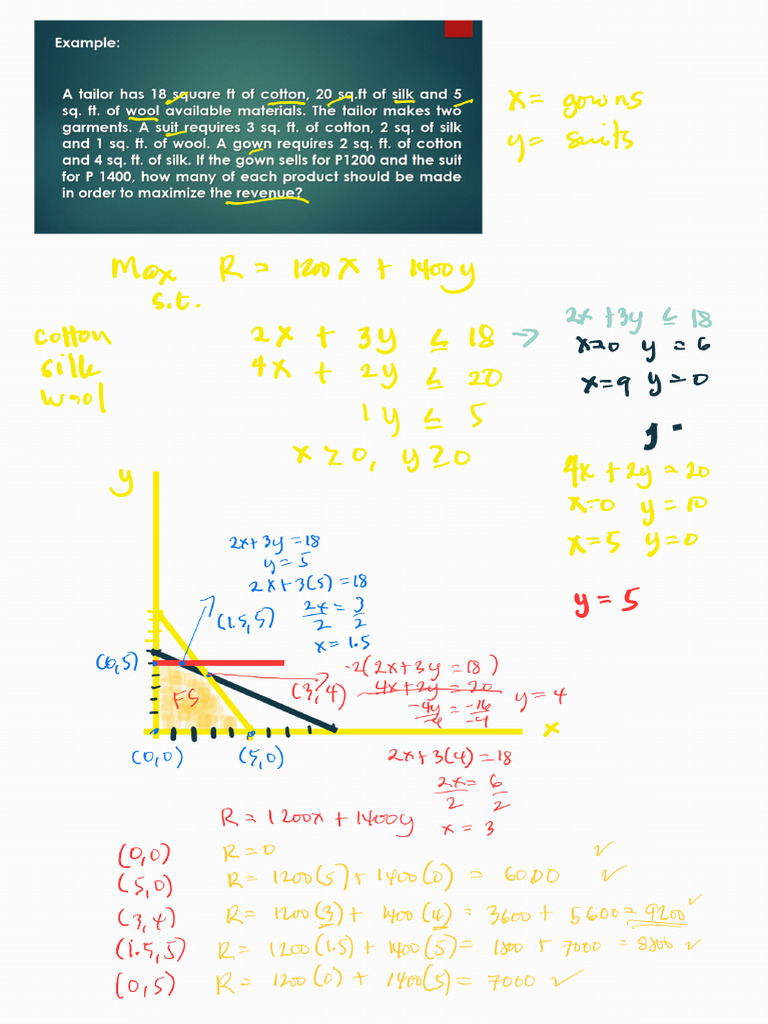 Example:
A tailor has 18 square ft of cotton, 20 sq.ft of silk and 5
sq. ft. of wool available materials. The tailor makes two
garments. A suit requires 3 sq. ft. of cotton, 2 sq. of silk
and 1 sq. ft. of wool. A gown requires 2 sq. ft. of cotton
and 4 sq. ft. of silk. If the gown sells for P1200 and the suit
for P 1400, how many of each product should be made
in order to maximize the revenue?
x = gowns
y = suits
Max R = 1200x + 1400y
s.t.
cotton 2x + 3y ≤ 18 →
silk 4x + 2y ≤ 20
wool 1y ≤ 5
x ≥ 0, y ≥ 0
2x + 3y ≤ 18
x=0 y = 6
x=9 y=0
4x + 2y = 20
x=0 y = 10
x=5 y=0
y = 5
y
2x + 3y = 18
y = 5
2x + 3(5) = 18
2x/2 = 3/2
x = 1.5
(1.5, 5)
(0,5)
FS
(3,4)
-2(2x + 3y = 18)
4x + 2y = 20
-4y/-4 = -16/-4
y = 4
x
(0,0)
(5,0)
2x + 3(4) = 18
2x/2 = 6/2
x = 3
R = 1200x + 1400y
(0,0) R = 0 ✓
(5,0) R = 1200(5) + 1400(0) = 6000 ✓
(3,4) R = 1200(3) + 1400(4) = 3600 + 5600 = 9200 ✓
(1.5,5) R = 1200(1.5) + 1400(5) = 1800 + 7000 = 8800 ✓
(0,5) R = 1200(0) + 1400(5) = 7000 ✓